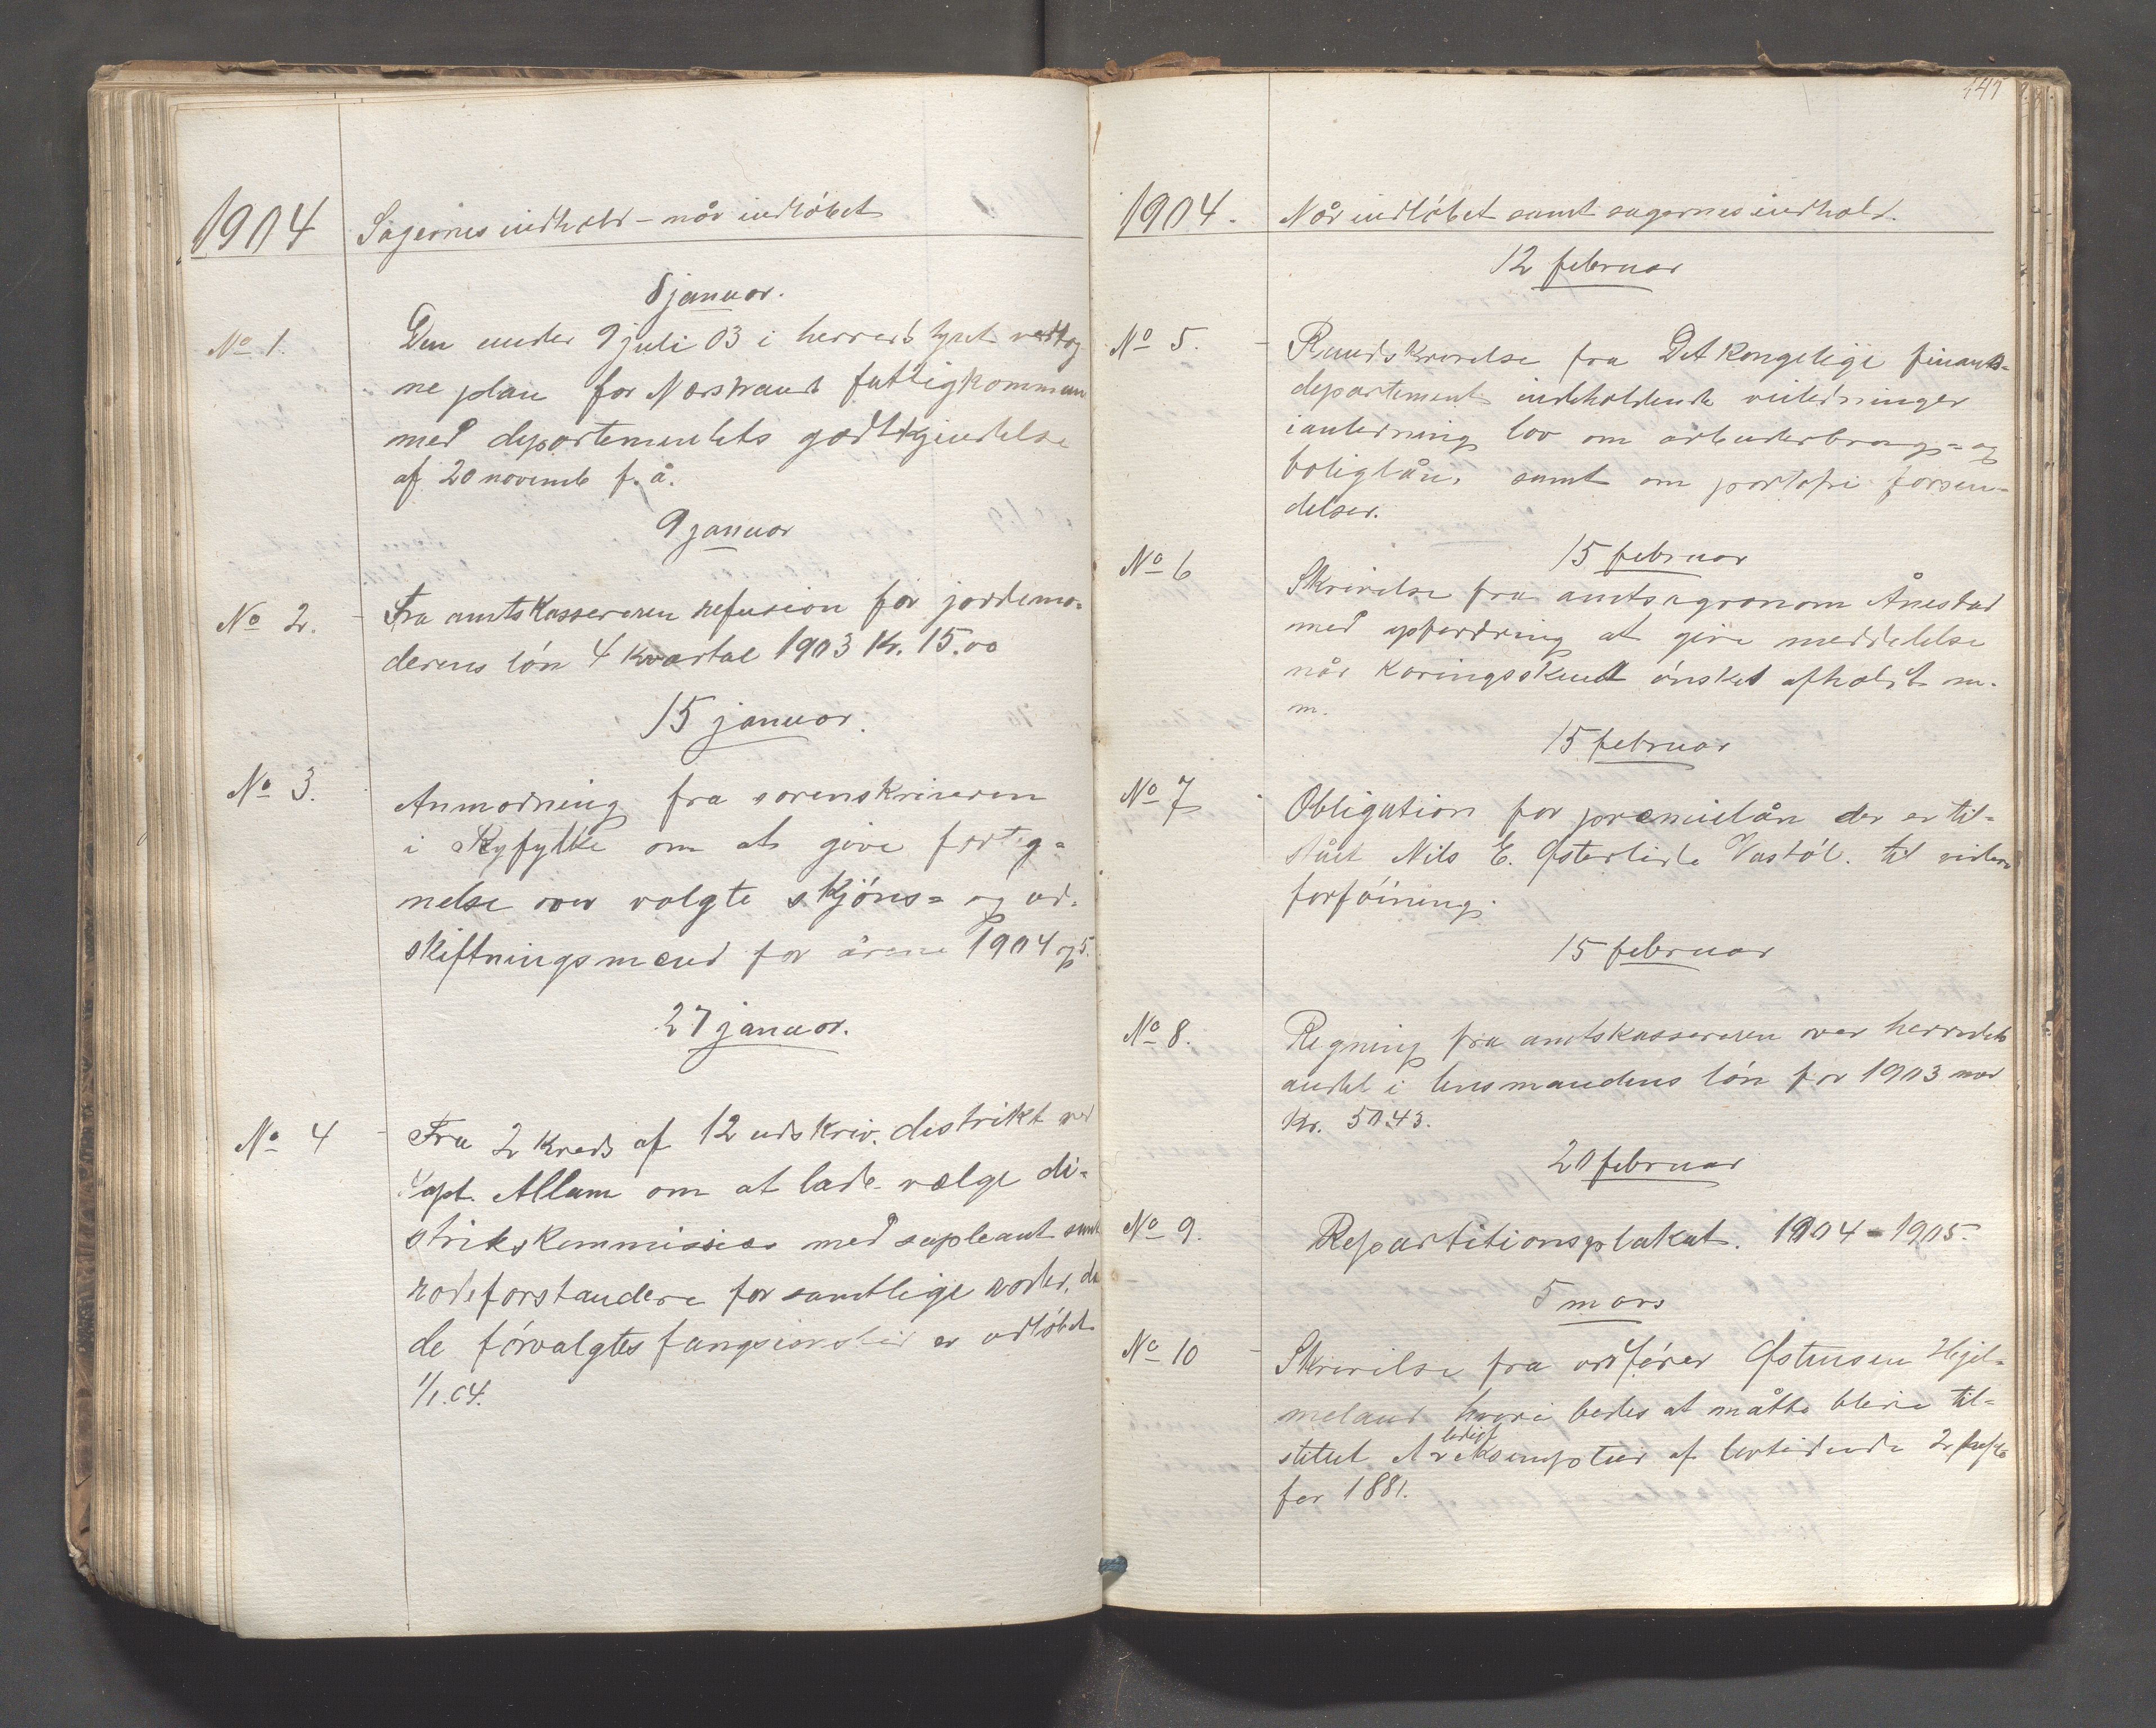 1904
Sagernes indhold – når indløbet
8 januar.
No 1.
Den under 9 juli 03 i herredstyret vedtag
ne plan for Nærstrand fattigkommun
med departementets godtkjendelse
af 20 novemb f. å.
9 januar
No 2.
Fra amtskassereren refusion for jordemo-
derens løn 4 kvartal 1903 Kr. 15.00
15 januar.
No 3.
Anmodning fra sorenskriveren
i Ryfylke om at give forteg=
nelse over valgte skjøns= og ud-
skiftningsmænd for årene 1904 og 5.
27 januar.
No 4
Fra 2 kreds af 12 udskriv. distrikt ved
Kapt. Allum om at lade vælge di=
strikskommission med supleant samt
rodeforstandere for samtlige roder, da
de førvalgtes fungsionstid er udløbet
1/1.04.
147
1904.
Når indløbet samt sagernes indhold.
12 februar
No 5.
Rundskrivelse fra Det kongelige finants=
departement indeholdende veiledninger
i anledning lov om arbeiderbrug= og
boliglån, samt om portofri forsen=
delser.
15 februar
No 6
Skrivelse fra amtsagronom Ånestad
med opfordring at give meddelelse
når kåringsskuet ønskes afholdt m.
m.
15 februar
No 7
Obligation for præmielån der er til=
stået Nils E. Østerlide Vastøl. til videre
forføining.
15 februar
No 8.
Regning fra amtskassereren over herredets
andel i lensmandens løn for 1903 med
Kr. 50.43.
20 februar
No 9.
Repartitionsplakat. 1904 - 1905.
5 mars
No 10
Skrivelse fra ordfører Østensen Hjel=
meland hvori bedes at måtte blive til=
stillet 1 ledigt eksemplar af lovtidende 2 hefte
for 1881.